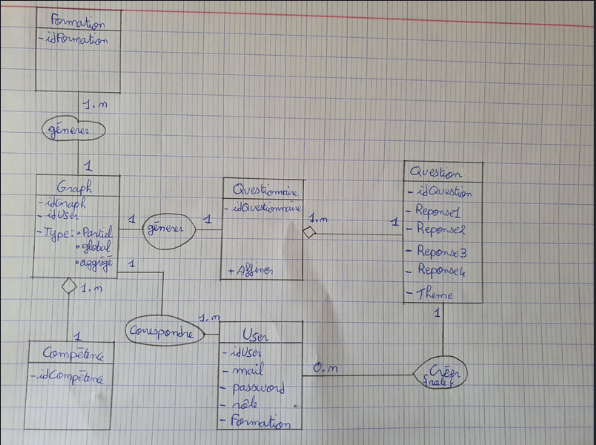 Formation
- idFormation
1.m
génerer
1
Graph
- idGraph
- idUser
- Type: • Partiel
• global
• aggrégé
1
génerer
1
Questionnaire
- idQuestionnaire
+ Affiner
1.m
1
Question
- idQuestion
- Reponse1
- Reponse2
- Reponse3
- Reponse4
- Theme
1
1.m
1
Compétence
- idCompétence
1
Correspondre
1.m
User
- idUser
- mail
- password
- rôle
- Formation
0.m
Créer